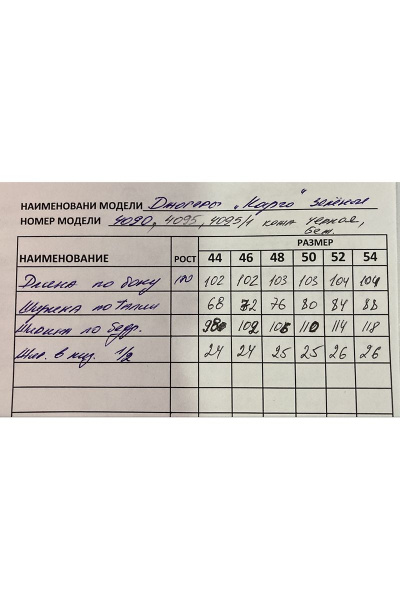 НАИМЕНОВАНИ МОДЕЛИ Джогеры „Карго" зелёные
НОМЕР МОДЕЛИ 4090, 4095, 4095/1 кота черная,
беж.
РАЗМЕР
НАИМЕНОВАНИЕ РОСТ 44 46 48 50 52 54
Длина по боку 170 102 102 103 103 104 104
Ширина по талии 68 72 76 80 84 88
Ширина по бедр. 98 102 106 110 114 118
Шир. в низ. 1/2 24 24 25 25 26 26